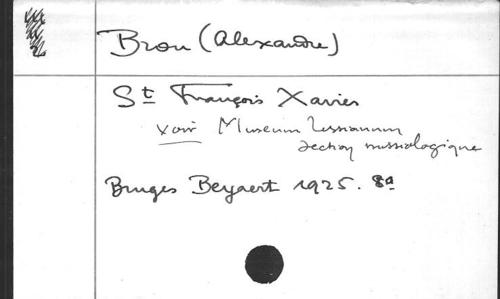 Brou (Alexandre)
St François Xavier
voir Museum Lessianum
section missiologique
Bruges Beyaert 1925. 8a